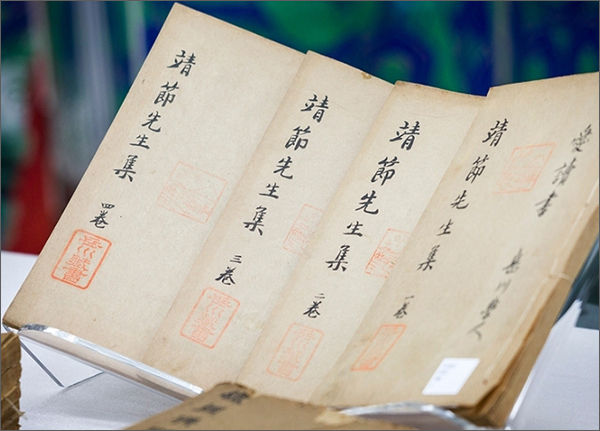 愛讀書
靖節先生集
一卷
靖節先生集
二卷
靖節先生集
三卷
靖節先生集
四卷